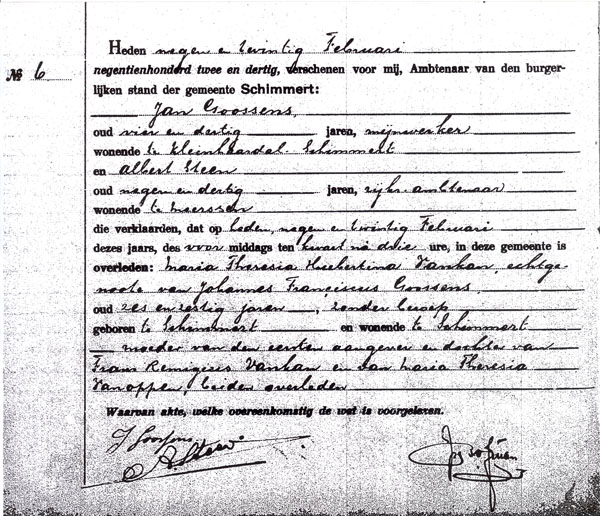 Heden negen en twintig Februari
№ 6
negentienhonderd twee en dertig, verschenen voor mij, Ambtenaar van den burger-
lijken stand der gemeente Schimmert:
Jan Goossens,
oud vier en dertig jaren, mijnwerker
wonende te Kleinhaasdal-Schimmert
en Albert Steen
oud negen en dertig jaren, rijksambtenaar
wonende te Meerssen
die verklaarden, dat op heden, negen en twintig Februari
dezes jaars, des voor middags ten kwart na drie ure, in deze gemeente is
overleden: Maria Theresia Huibertina Vankan, echtge-
noote van Johannes Franciscus Goossens,
oud zes en zestig jaren, zonder beroep
geboren te Schimmert en wonende te Schimmert
moeder van den eersten aangever en dochter van
Frans Remigius Vankan en van Maria Theresia
Vanoppen, beiden overleden
Waarvan akte, welke overeenkomstig de wet is voorgelezen.
J Goossens
A. Steen